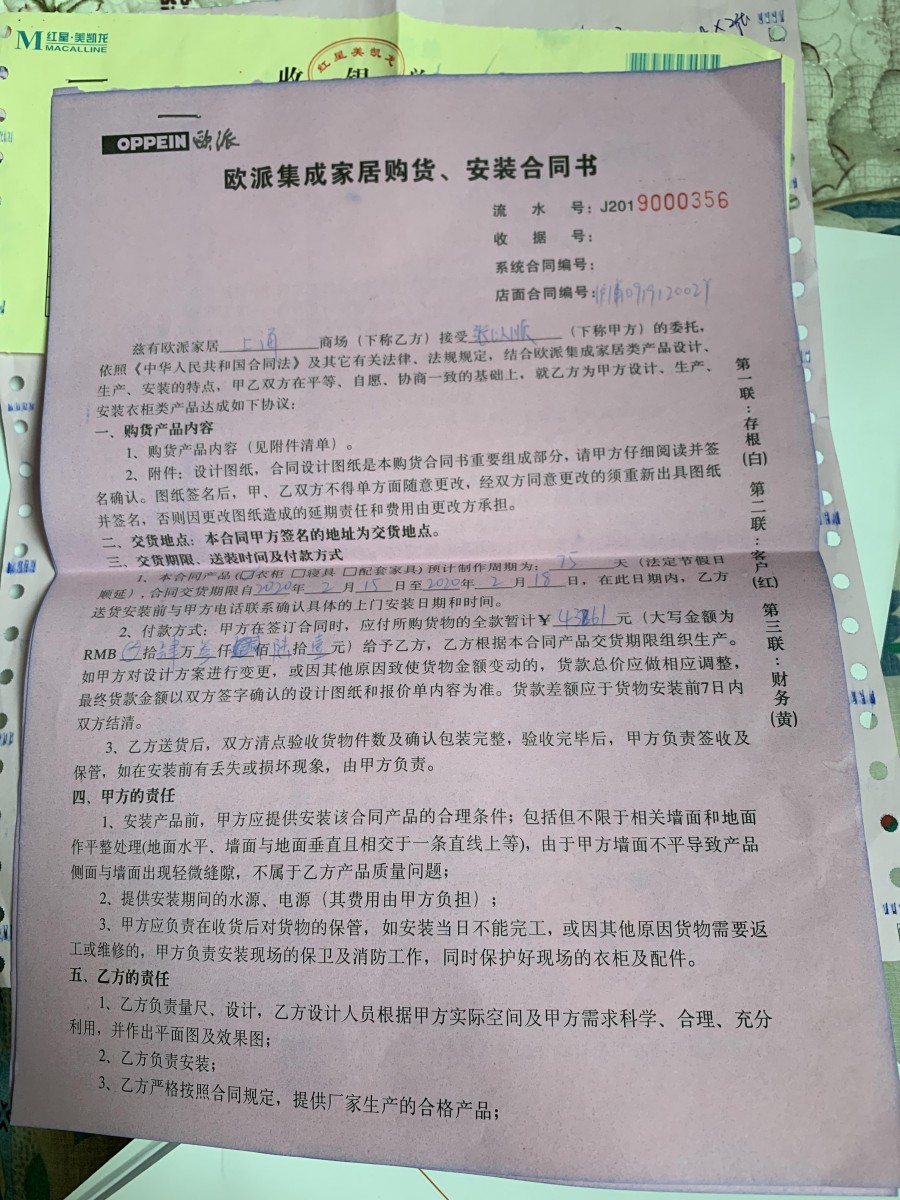 红星·美凯龙
MACALLINE
红星美凯龙
收银
OPPEIN 欧派
欧派集成家居购货、安装合同书
流水号：J2019000356
收据号：
系统合同编号：
店面合同编号：
兹有欧派家居 商场（下称乙方）接受 （下称甲方）的委托，
依照《中华人民共和国合同法》及其它有关法律、法规规定，结合欧派集成家居类产品设计、
生产、安装的特点，甲乙双方在平等、自愿、协商一致的基础上，就乙方为甲方设计、生产、
安装衣柜类产品达成如下协议：
一、购货产品内容
1、购货产品内容（见附件清单）。
2、附件：设计图纸，合同设计图纸是本购货合同书重要组成部分，请甲方仔细阅读并签
名确认。图纸签名后，甲、乙双方不得单方面随意更改，经双方同意更改的须重新出具图纸
并签名，否则因更改图纸造成的延期责任和费用由更改方承担。
二、交货地点：本合同甲方签名的地址为交货地点。
三、交货期限、送装时间及付款方式
1、本合同产品（☐衣柜 ☐寝具 ☐配套家具）预计制作周期为：75天（法定节假日
顺延），合同交货期限自2020年2月15日至2020年2月18日，在此日期内，乙方
送货安装前与甲方电话联系确认具体的上门安装日期和时间。
2、付款方式：甲方在签订合同时，应付所购货物的全款暂计¥ 元（大写金额为
RMB 拾肆万叁仟 佰陆拾壹元）给予乙方，乙方根据本合同产品交货期限组织生产。
如甲方对设计方案进行变更，或因其他原因致使货物金额变动的，货款总价应做相应调整，
最终货款金额以双方签字确认的设计图纸和报价单内容为准。货款差额应于货物安装前7日内
双方结清。
3、乙方送货后，双方清点验收货物件数及确认包装完整，验收完毕后，甲方负责签收及
保管，如在安装前有丢失或损坏现象，由甲方负责。
四、甲方的责任
1、安装产品前，甲方应提供安装该合同产品的合理条件；包括但不限于相关墙面和地面
作平整处理(地面水平、墙面与地面垂直且相交于一条直线上等)，由于甲方墙面不平导致产品
侧面与墙面出现轻微缝隙，不属于乙方产品质量问题；
2、提供安装期间的水源、电源（其费用由甲方负担）；
3、甲方应负责在收货后对货物的保管，如安装当日不能完工，或因其他原因货物需要返
工或维修的，甲方负责安装现场的保卫及消防工作，同时保护好现场的衣柜及配件。
五、乙方的责任
1、乙方负责量尺、设计，乙方设计人员根据甲方实际空间及甲方需求科学、合理、充分
利用，并作出平面图及效果图；
2、乙方负责安装；
3、乙方严格按照合同规定，提供厂家生产的合格产品；
第一联：存根(白) 第二联：客户(红) 第三联：财务(黄)